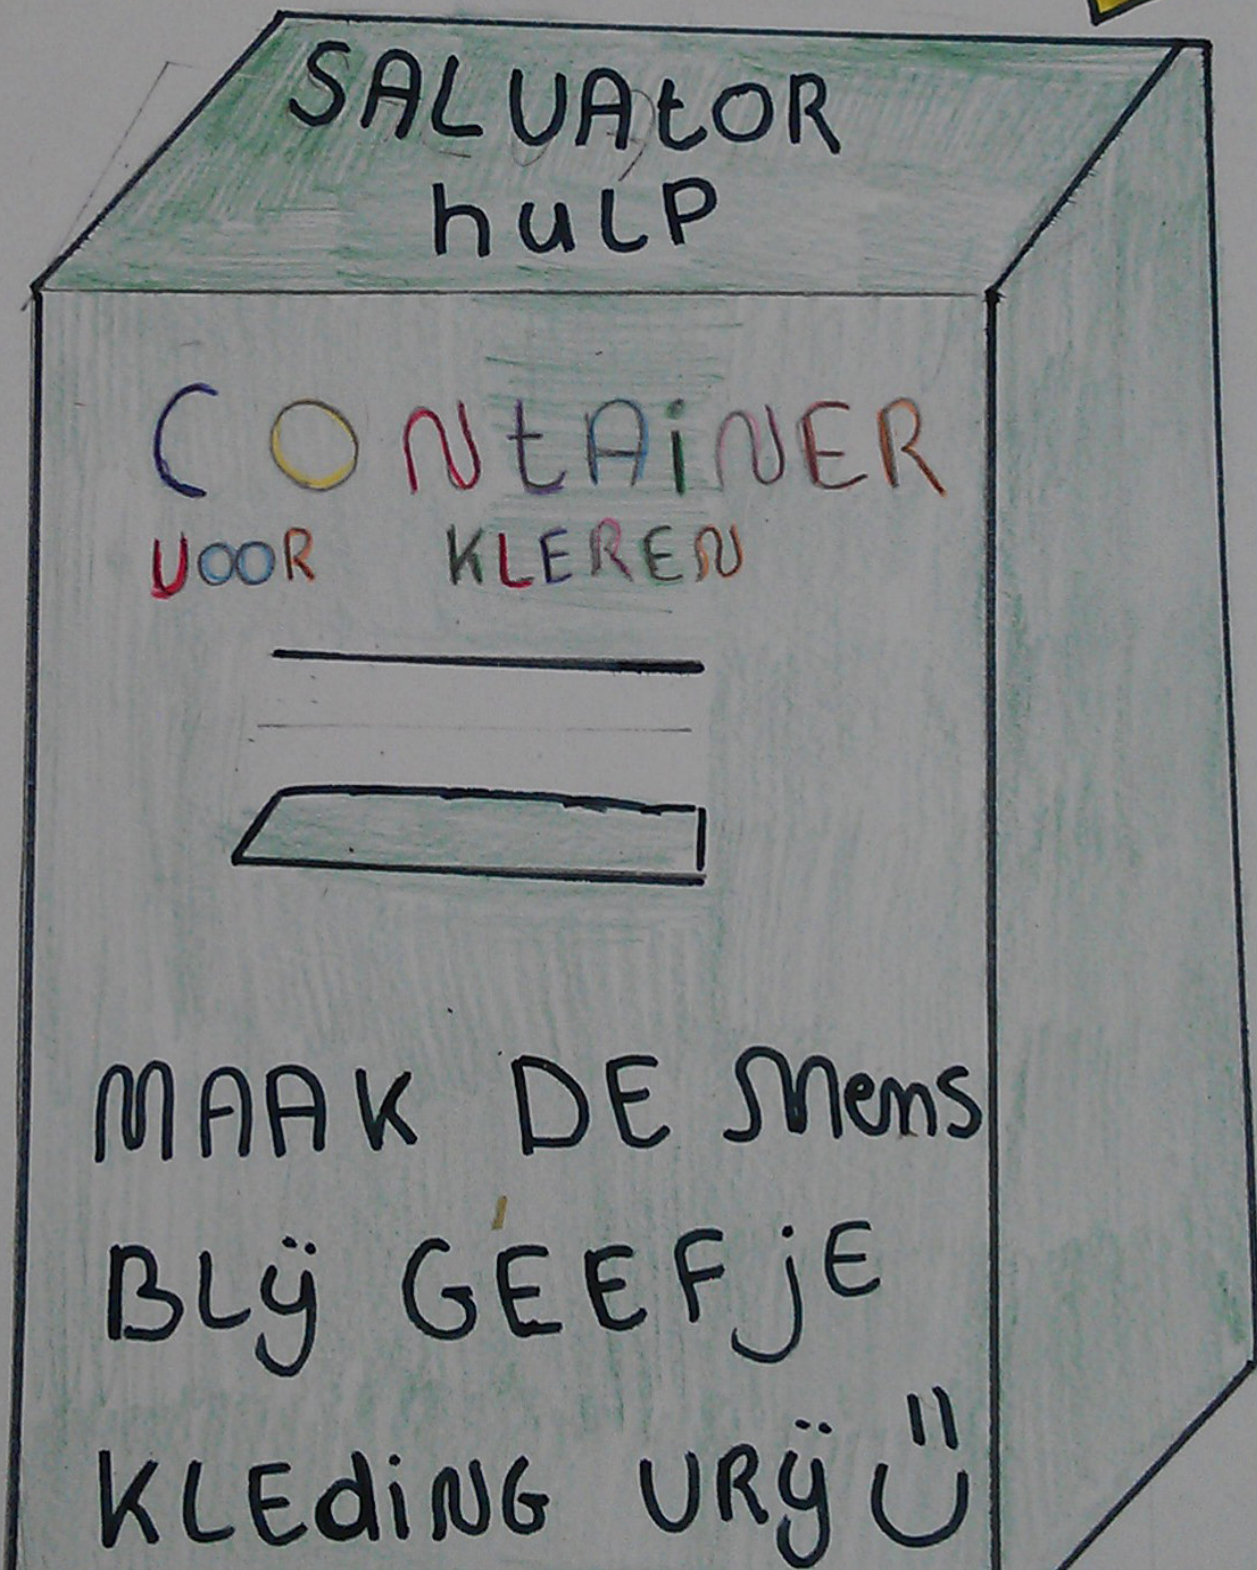 SALVAtOR
hulp
CONtAiNER
VOOR KLEREN
MAAK DE Mens
BLij GÉEF jE
KLEdiNG VRij ü